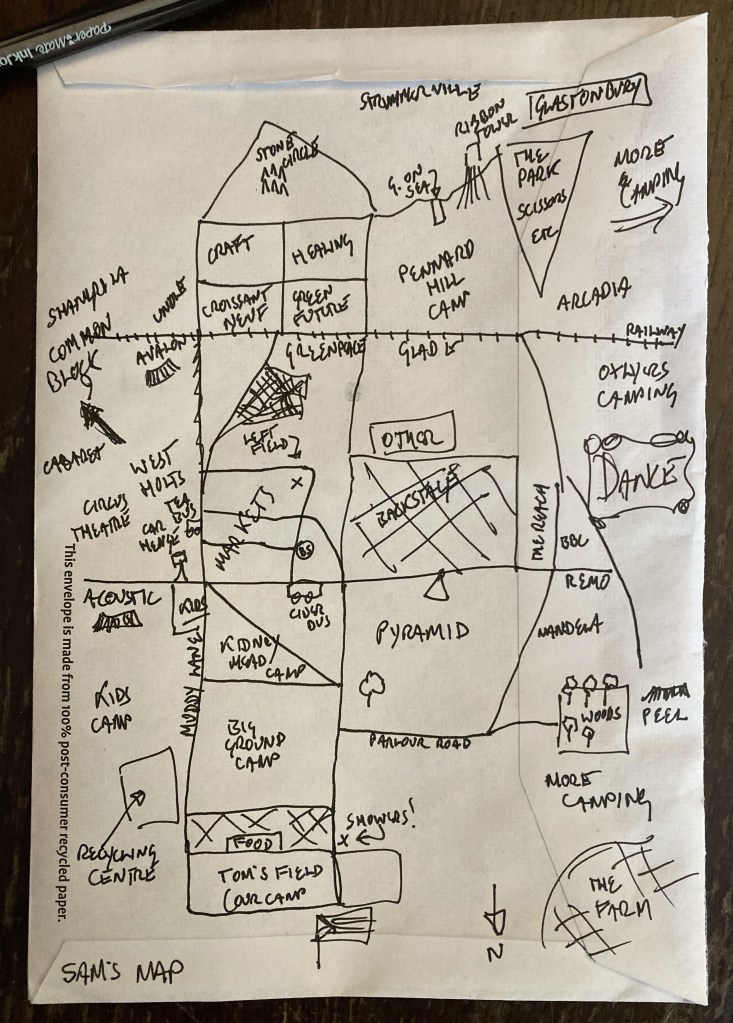 Paper:Mate InkJo
STRUMMERVILLE
GLASTONBURY
RIBBON
TOWER
STONE
CIRCLE
G. ON
SEA
THE
PARK
SCISSORS
ETC
MORE
CAMPING
CRAFT
HEALING
PENNARD
HILL
CAMP
ARCADIA
CROISSANT
NEUF
GREEN
FUTURE
SHANGRILA
UNFAIR
COMMON
BLOCK
AVALON
GREENPEACE
GLADE
RAILWAY
OXLYERS
CAMPING
CABARET
LEFT
FIELD
OTHER
BACKSTAGE
DANCE
WEST
HOLTS
TEA
BUS
CIRCUS
THEATRE
CAR
HENGE
MARKETS
X
BS
THE REACH
BBC
REMO
ACOUSTIC
KIDS
CIDER
BUS
PYRAMID
MANDELA
KIDNEY
MEAD
CAMP
MUDDY LANE
KIDS
CAMP
BIG
GROUND
CAMP
PARLOUR ROAD
WOODS
PEEL
MORE
CAMPING
FOOD
X
SHOWERS!
RECYCLING
CENTRE
TOM'S FIELD
(OUR CAMP
THE
FARM
N
SAM'S MAP
This envelope is made from 100% post-consumer recycled paper.